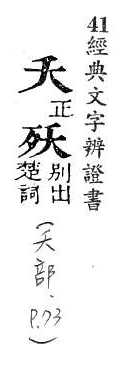 41經典文字辨證書
夭正殀別出楚詞
(夭部、P.73)